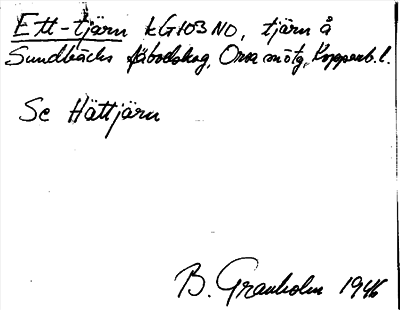 Ett-tjärn kG103NO, tjärn å
Sundbäcks fäbodskog, Orsa sn ötg, Kopparb. l.
Se Hättjärn
B. Granholm 1946